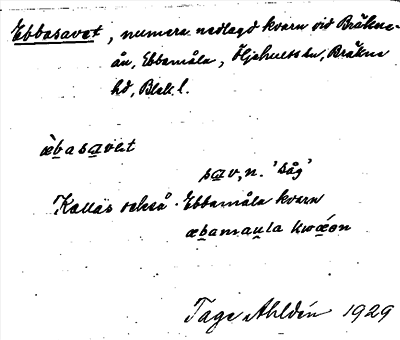 Ebbasavet, numera nedlagd kvarn vid Bräkne-
ån, Ebbamåla, Öljehults sn, Bräkne
hd, Blek. l.
æ̀basavet
sav, n. 'såg'
Kallas också Ebbamåla kvarn
æbamaula kwǽon
Tage Ahldén 1929